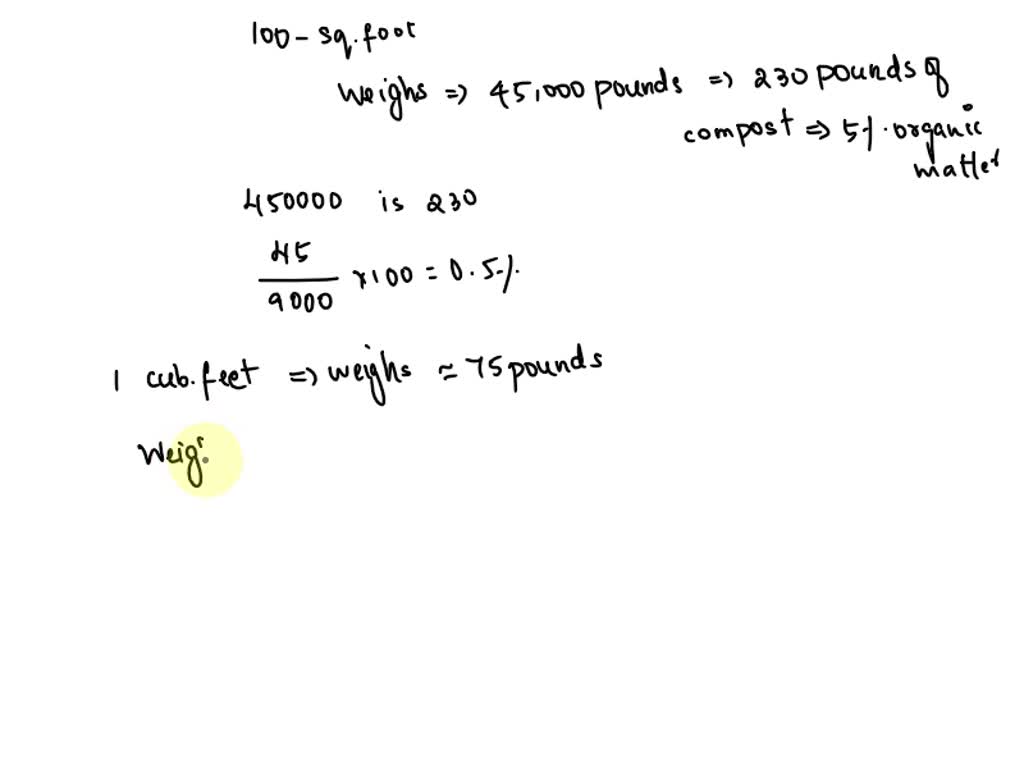 100 - sq. foot
weighs => 45,000 pounds => 230 pounds of
compost => 5%. organic
matter
450000 is 230
45
9000
x100 = 0.5%.
1 cub. feet => weighs ≈ 75 pounds
Weig